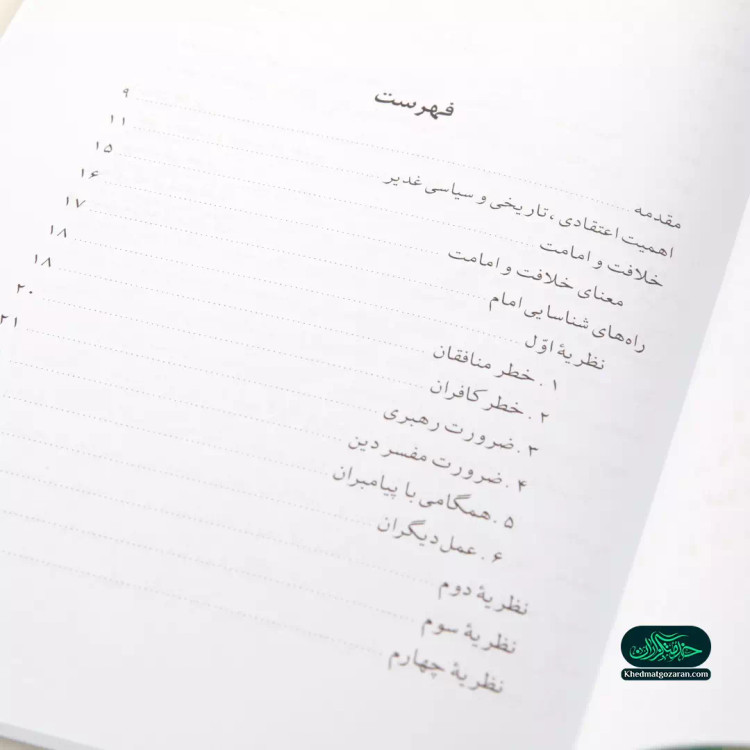 فهرست
مقدمه ۹
اهمیت اعتقادی، تاریخی و سیاسی غدیر ۱۱
خلافت و امامت ۱۵
معنای خلافت و امامت ۱۶
راه‌های شناسایی امام ۱۷
نظریهٔ اوّل ۱۸
۱. خطر منافقان ۱۸
۲. خطر کافران ۲۰
۳. ضرورت رهبری ۲۱
۴. ضرورت مفسر دین
۵. همگامی با پیامبران
۶. عمل دیگران
نظریهٔ دوم
نظریهٔ سوم
نظریهٔ چهارم
خدمتگزاران
Khedmatgozaran.com